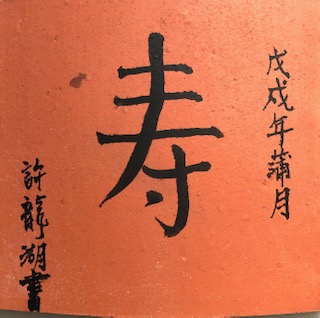 戊戌年蒲月
寿
許龍湖書